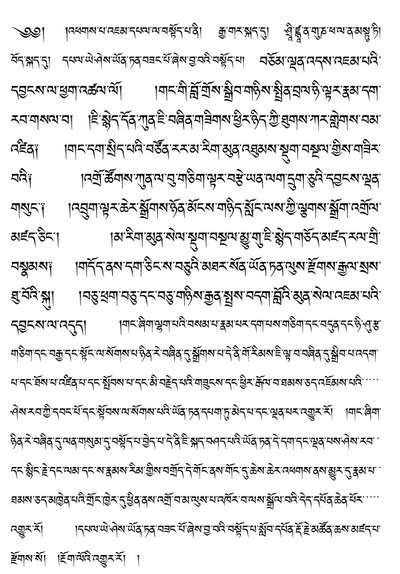 ༄༅། །འཕགས་པ་འཇམ་དཔལ་ལ་བསྟོད་པ་ནི། རྒྱ་གར་སྐད་དུ། ཤྲཱི་ཛྙཱ་ན་གུ་ཎ་ཕ་ལ་ན་མ་སྟུ་ཏི།
བོད་སྐད་དུ། དཔལ་ཡེ་ཤེས་ཡོན་ཏན་བཟང་པོ་ཞེས་བྱ་བའི་བསྟོད་པ། བཅོམ་ལྡན་འདས་འཇམ་པའི་
དབྱངས་ལ་ཕྱག་འཚལ་ལོ། །གང་གི་བློ་གྲོས་སྒྲིབ་གཉིས་སྤྲིན་བྲལ་ཉི་ལྟར་རྣམ་དག་
རབ་གསལ་བ། །ཇི་སྙེད་དོན་ཀུན་ཇི་བཞིན་གཟིགས་ཕྱིར་ཉིད་ཀྱི་ཐུགས་ཀར་གླེགས་བམ་
འཛིན༑ །གང་དག་སྲིད་པའི་བཙོན་རར་མ་རིག་མུན་འཐུམས་སྡུག་བསྔལ་གྱིས་གཟིར་
བའི༑ །འགྲོ་ཚོགས་ཀུན་ལ་བུ་གཅིག་ལྟར་བརྩེ་ཡན་ལག་དྲུག་ཅུའི་དབྱངས་ལྡན་
གསུང་༑ །འབྲུག་ལྟར་ཆེར་སྒྲོགས་ཉོན་མོངས་གཉིད་སློང་ལས་ཀྱི་ལྕགས་སྒྲོག་འགྲོལ་
མཛད་ཅིང་། །མ་རིག་མུན་སེལ་སྡུག་བསྔལ་མྱུ་གུ་ཇི་སྙེད་གཅོད་མཛད་རལ་གྲི་
བསྣམས༑ །གདོད་ནས་དག་ཅིང་ས་བཅུའི་མཐར་སོན་ཡོན་ཏན་ལུས་རྫོགས་རྒྱལ་སྲས་
ཐུ་བོའི་སྐུ། །བཅུ་ཕྲག་བཅུ་དང་བཅུ་གཉིས་རྒྱན་སྤྲས་བདག་བློའི་མུན་སེལ་འཇམ་པའི་
དབྱངས་ལ་འདུད། །གང་ཞིག་ལྷག་པའི་བསམ་པ་རྣམ་པར་དག་པས་གཅིག་དང་བདུན་དང་ཉི་ཤུ་རྩ་
གཅིག་དང་བརྒྱ་དང་སྟོང་ལ་སོགས་པ་ཉིན་རེ་བཞིན་དུ་སྒྲོགས་པ་དེ་ནི་གོ་རིམས་ཇི་ལྟ་བ་བཞིན་དུ་སྒྲིབ་པ་འདག་
པ་དང་ཐོས་པ་འཛིན་པ་དང་སྤོབས་པ་དང་མི་བརྗེད་པའི་གཟུངས་དང་ཕྱིར་རྒོལ་བ་ཐམས་ཅད་འཇོམས་པའི་
ཤེས་རབ་ཀྱི་དབང་པོ་དང་སྟོབས་ལ་སོགས་པའི་ཡོན་ཏན་དཔག་ཏུ་མེད་པ་དང་ལྡན་པར་འགྱུར་རོ། །གང་ཞིག་
ཉིན་རེ་བཞིན་དུ་ལན་གསུམ་དུ་བསྟོད་པ་བྱེད་པ་དེ་ནི་ཇི་སྐད་བཤད་པའི་ཡོན་ཏན་དེ་དག་དང་ལྡན་པས་ཤེས་རབ་
དང་སྙིང་རྗེ་དང་ལམ་དང་ས་རྣམས་རིམ་གྱིས་བགྲོད་དེ་གོང་ནས་གོང་དུ་ཆེས་ཆེར་འཕགས་ནས་མྱུར་དུ་རྣམ་པ་
ཐམས་ཅད་མཁྱེན་པའི་གྲོང་ཁྱེར་དུ་ཕྱིན་ནས་འགྲོ་བ་མ་ལུས་པ་འཁོར་བ་ལས་སྒྲོལ་བའི་དེད་དཔོན་ཆེན་པོར་
འགྱུར་རོ། །དཔལ་ཡེ་ཤེས་ཡོན་ཏན་བཟང་པོ་ཞེས་བྱ་བའི་བསྟོད་པ་སློབ་དཔོན་རྡོ་རྗེ་མཚོན་ཆས་མཛད་པ་
རྫོགས་སོ། །རྡོག་ལོའི་འགྱུར་རོ། །